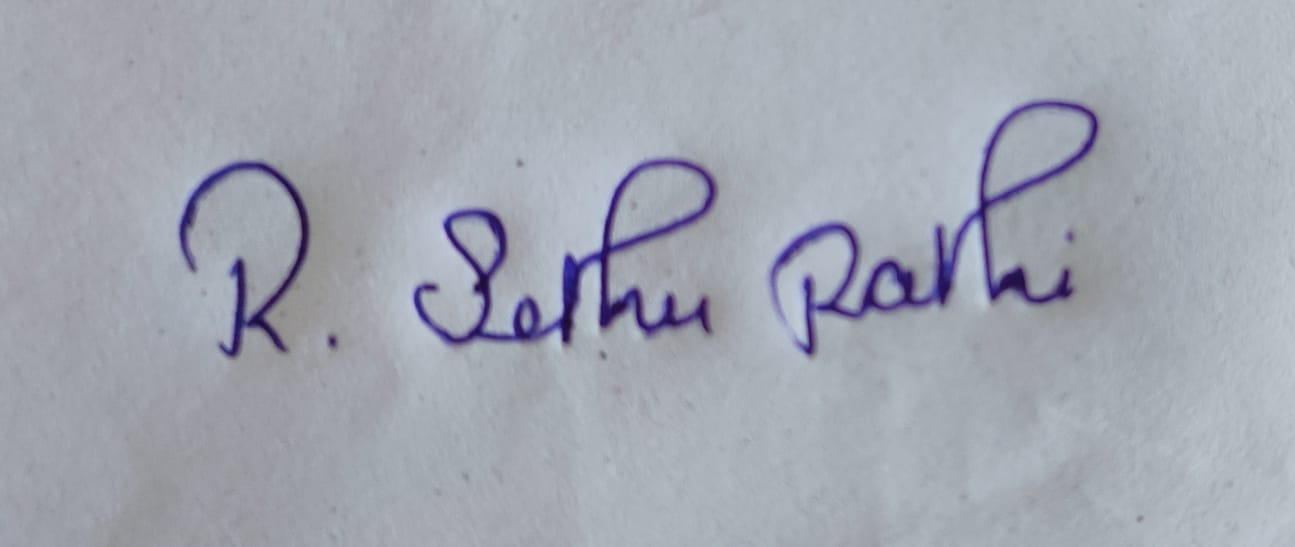 R. Sethu Rathi